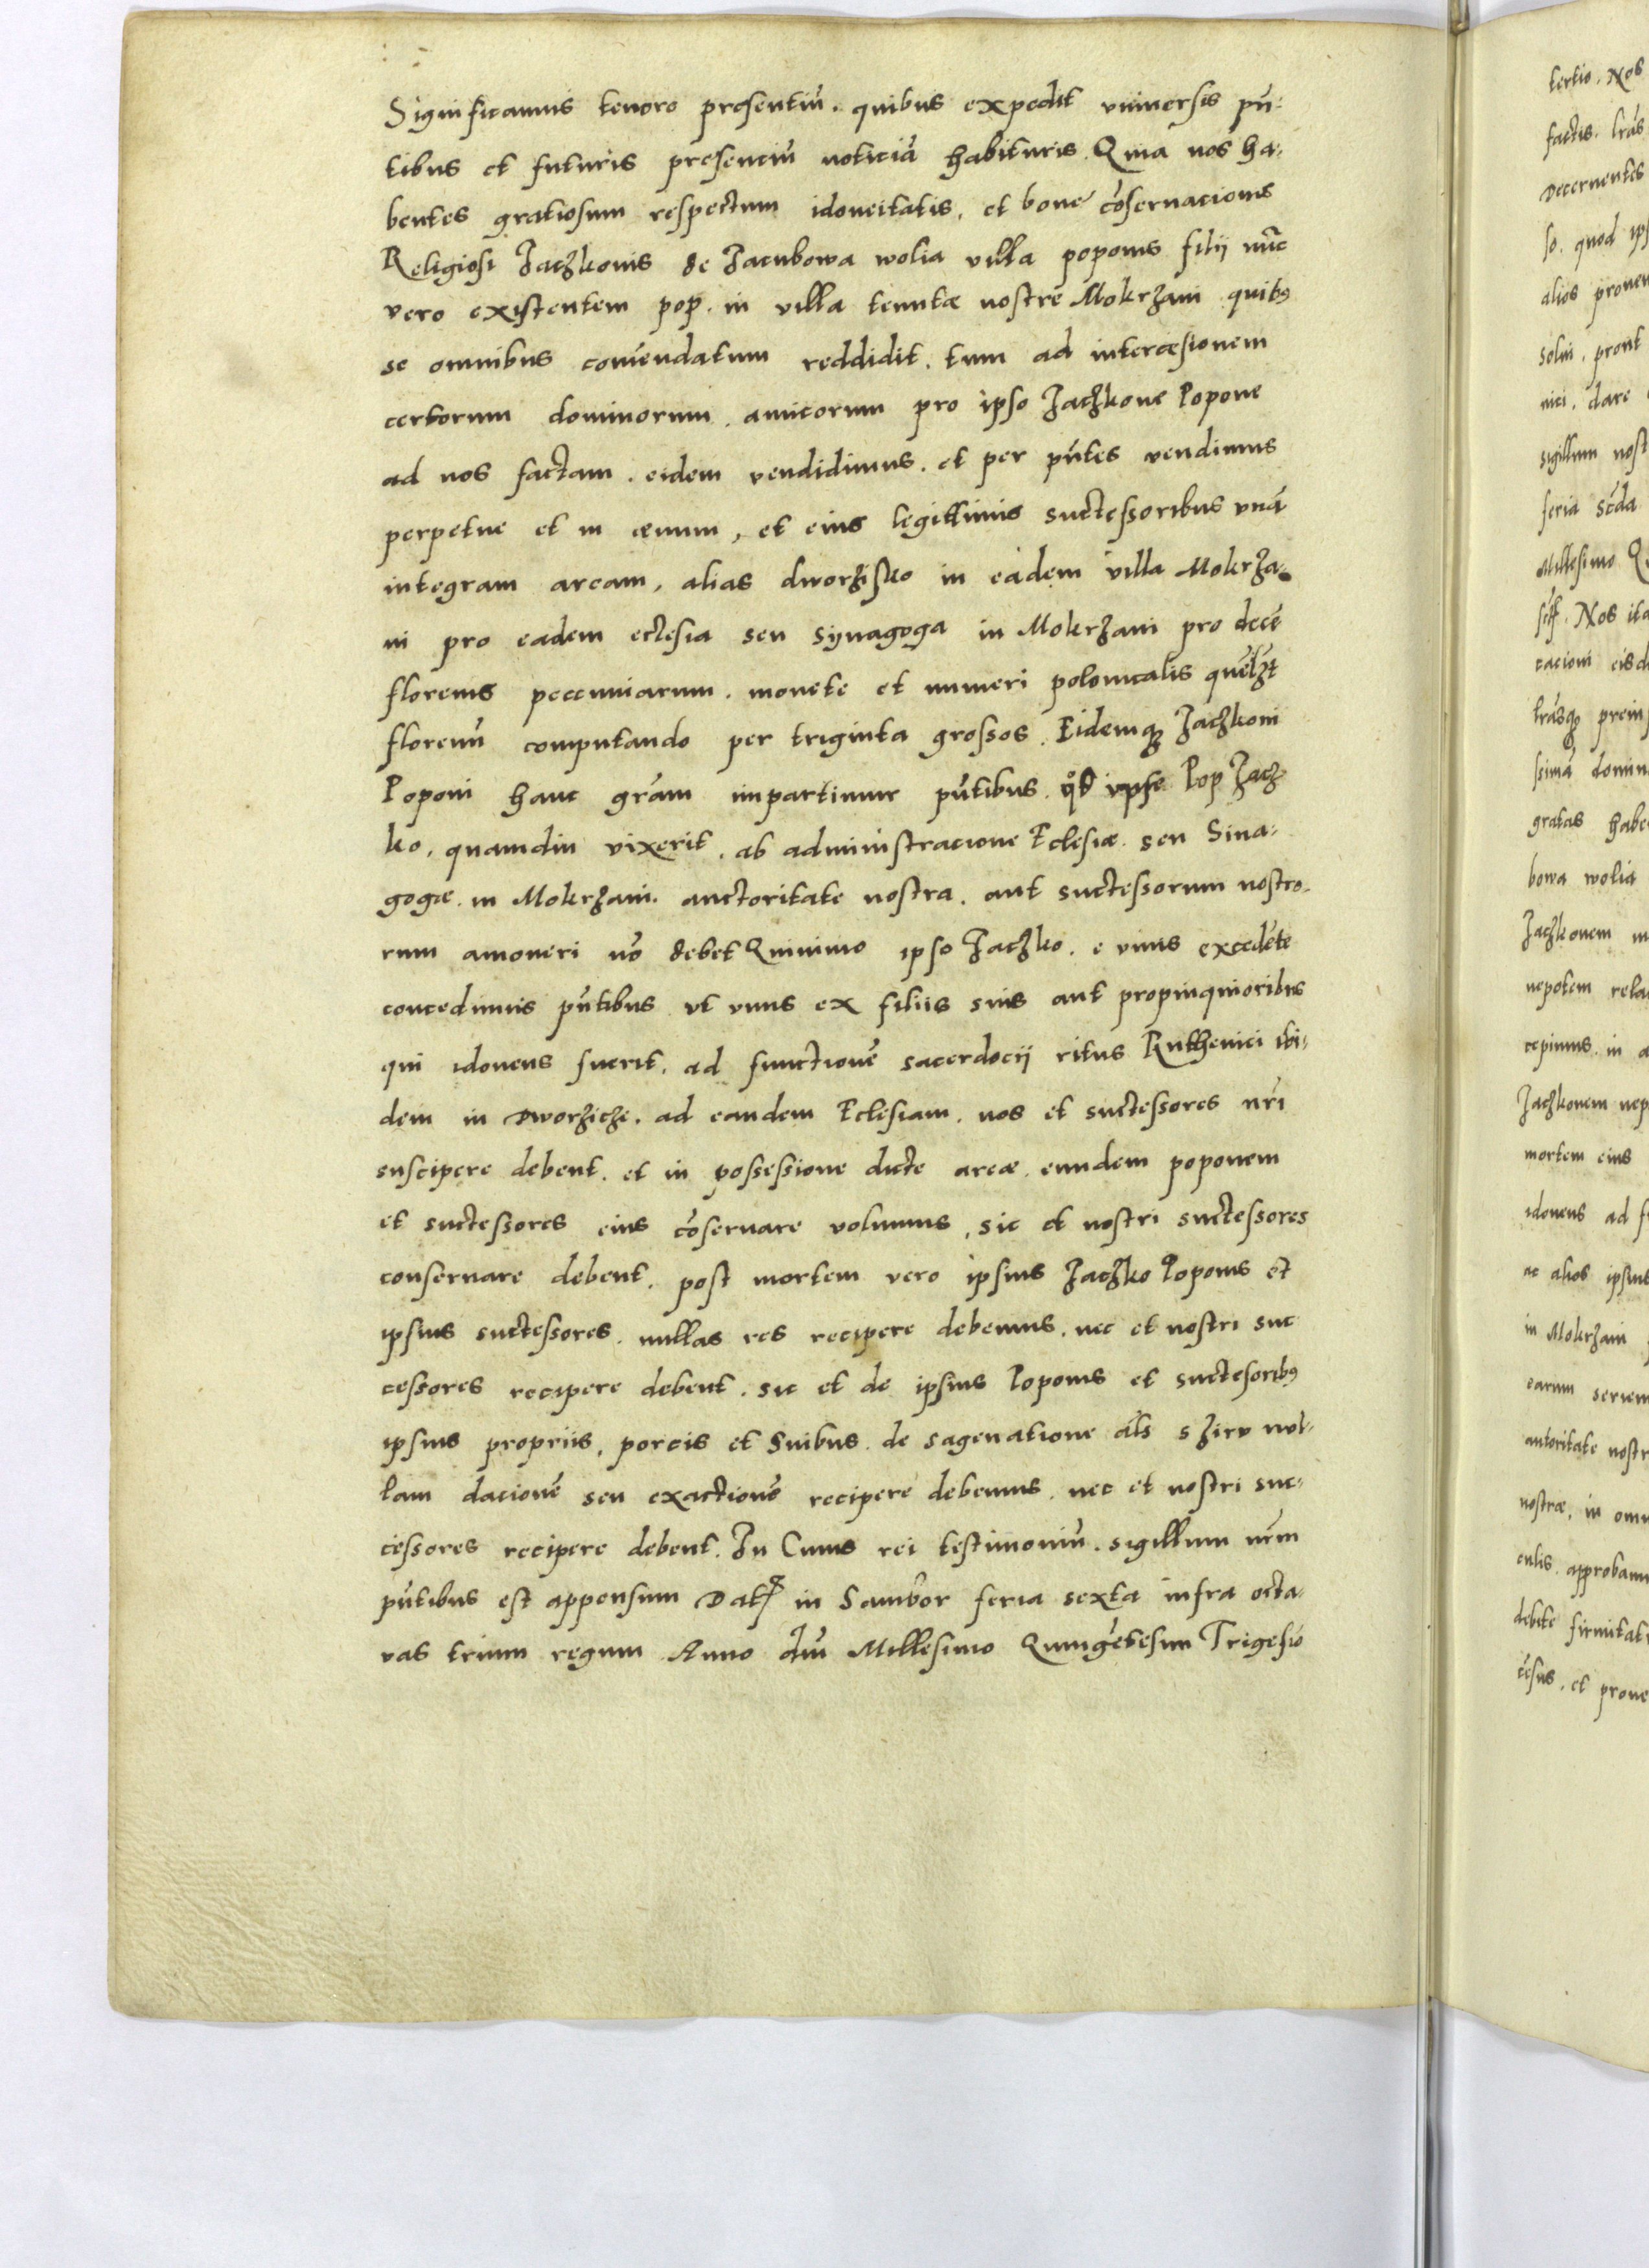 Significamus tenore presentiũ. quibus expedit vniuersis pñ-
tibus et futuris presenciũ noticiã habituris. Quia nos ha-
bentes gratiosum respectum idoneitatis, et bone cõseruacionis
Religiosi Jaczkonis de Jacubowa wolia villa poponis filij nũc
vero existentem pop. in villa tenutæ nostre Mokrzani quibꝫ
se omnibus comẽndatum reddidit. tum ad intercæsionem
certorum dominorum. amicorum pro ipso Jaczkone Popone
ad nos factam. eidem vendidimus. et per pñtes vendimus
perpetue et in æuum, et eius legittimis suctessoribus vnã
integram aream, alias dworzisko in eadem villa Mokrza-
ni pro eadem ectesia seu synagoga in Mokrzani pro decẽ
florenis peccuniarum. monete et numeri polonicalis quẽlʒt
florenũ computando per triginta grossos. Eidemqꝫ Jaczkoni
Poponi hanc grãm impartimur pñtibus. qd ipse Pop Jacz
ko. quamdiu vixerit. ab administracione Eclesiæ. seu Sina-
gogæ. in Mokrzani. auctoritate nostra. aut suctessorum nostro-
rum amoueri nõ debet Quinimo ipso Jaczko. e viuis excedẽte
concedimus pñtibus vt vnus ex filiis suis aut propinquioribus
qui idoneus fuerit. ad functionẽ sacerdocij ritus Ruthenici ibi-
dem in Dworziche. ad eandem Eclesiam. nos et suctessores nr̃i
suscipere debent. et in possessione dicte areæ eundem poponem
et suctessores eius cõseruare volumus, sic et nostri suctessores
conseruare debent. post mortem vero ipsius Jaczko Poponis et
ipsius suctessores. nullas res recipere debemus. nec et nostri suc
cessores recipere debent. sic et de ipsius Poponis et suctesoribꝫ
ipsius propriis, porcis et Suibus. de sagenatione als̃ s ziru nul-
lam dacionẽ seu exactionẽ recipere debemus. nec et nostri suc-
cessores recipere debent. In Cuius rei testimoniũ. sigillum nr̃m
pñtibus est appensum Dat in Sambor feria sexta infra octa-
vas trium regum Anno dñi Millesimo Quingẽtesimo Trigesiõ
tertio. Nos
factis. lrãs
Decernentes
so. quod ips
alios prouen
solui. prout
nici. dare
sigillum nost
feria scda
Millesimo Q
Nos ita
cacioni eisd
lrãsqꝫ prein
ssimã domin
gratas habe
bowa wolia
Jaczkonem
nepotem rela
cepimus. in a
Jaczkonem nep
mortem eius
idoneus ad f
ac alios ipsius
in Mokrzani
earum seriem
autoritate nostr
nostræ, in omn
culis. approbam
debite firmitat
cẽsus. et proue